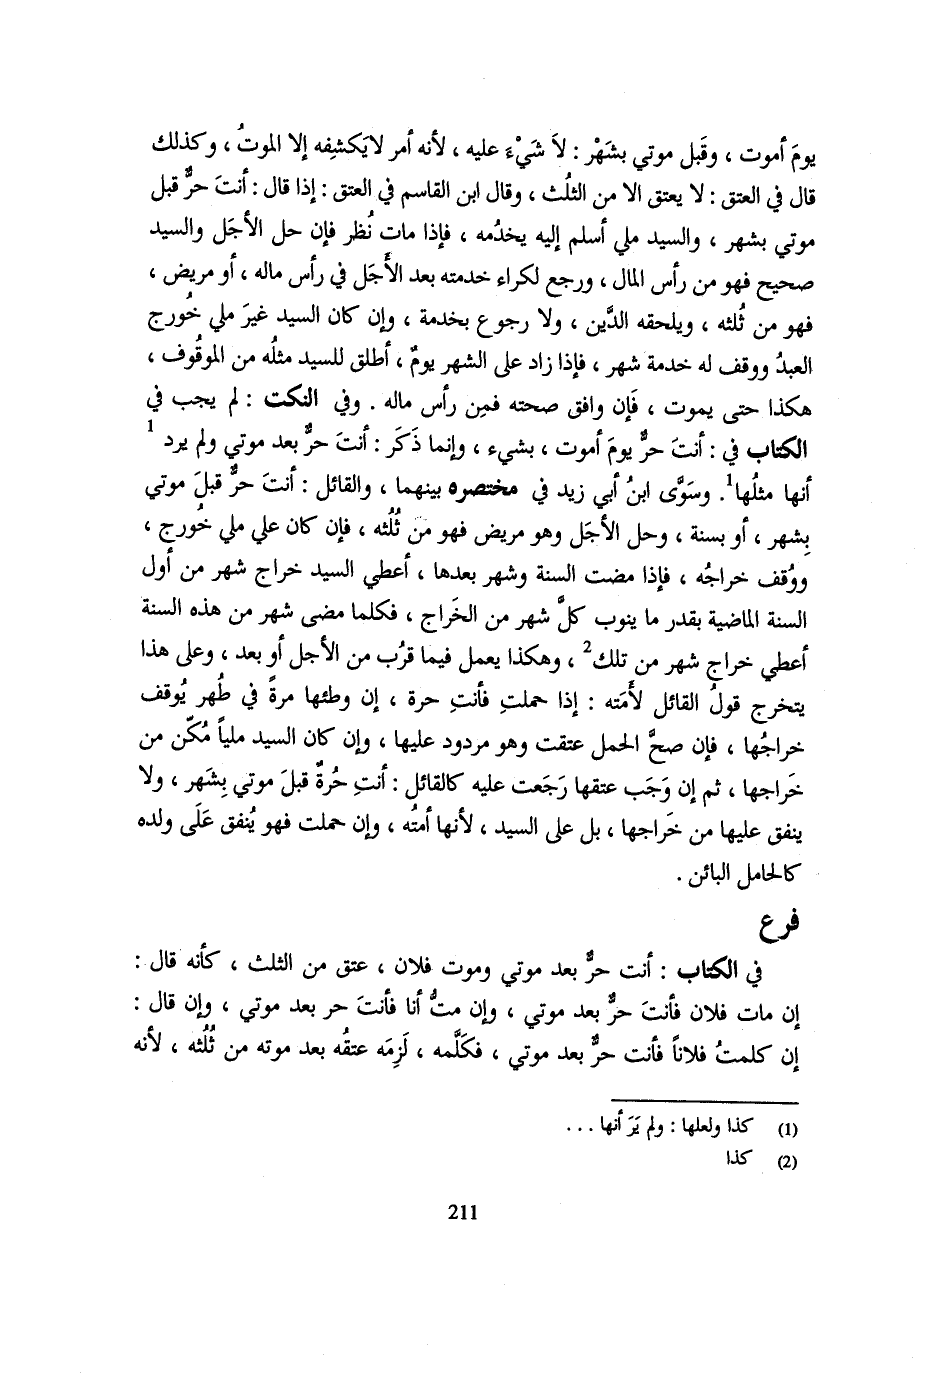 يومَ أموت ، وقَبل موتي بشَهْر : لاَ شَيْءَ عليه ، لأنه أمر لايَكشفِه إلا الموتُ ، وكذلك
قال في العتق : لا يعتق الا من الثلُث ، وقال ابن القاسم في العتق : إذا قال : أنتَ حرٌّ قبل
موتي بشهر ، والسيد ملي أسلم إليه يخدُمه ، فإذا مات نُظر فإن حل الأجَل والسيد
صحيح فهو من رأس المال ، ورجع لكراء خدمته بعد الأَجَل في رأس ماله ، أو مريض ،
فهو من ثُلثه ، ويلحقه الدَّين ، ولا رجوع بخدمة ، وإن كان السيد غيرَ ملي خُورج
العبدُ ووقف له خدمة شهر ، فإذا زاد على الشهر يومٌ ، أطلق للسيد مثلُه من الموقُوف ،
هكذا حتى يموت ، فَإن وافق صحته فمِن رأس ماله . وفي النكت : لم يجب في
الكتاب في : أنتَ حرٌّ يومَ أموت ، بشيء ، وإنما ذَكَر : أنتَ حرٌّ بعد موتي ولم يرد 1
أنها مثلُها1. وسَوَّى ابنُ أبي زيد في مختصره بينهما ، والقائل : أنتَ حرٌّ قبلَ موتي
بِشهر ، أو بسنة ، وحل الأجَل وهو مريض فهو من ثُلُثه ، فإن كان علي ملي خُورج ،
ووُقف خراجُه ، فإذا مضت السنة وشهر بعدها ، أعطي السيد خراج شهر من أول
السنة الماضية بقدر ما ينوب كلَّ شهر من الخَراج ، فكلما مضى شهر من هذه السنة
أعطي خراج شهر من تلك2 ، وهكذا يعمل فيما قرُب من الأجل أو بعد ، وعلى هذا
يتخرج قولُ القائل لأَمَته : إذا حملتِ فأنتِ حرة ، إن وطئها مرةً في طُهر يُوقف
خراجُها ، فإن صحَّ الحمل عتقت وهو مردود عليها ، وإن كان السيد ملياً مُكّن من
خَراجها ، ثم إن وَجَب عتقها رَجَعت عليه كالقائل : أنتِ حُرةٌ قبلَ موتي بِشَهر ، ولا
ينفق عليها من خَراجها ، بل على السيد ، لأنها أمتُه ، وإن حملت فهو يُنفق عَلَى ولده
كالحامل البائن .
فرع
في الكتاب : أنت حرٌّ بعد موتي وموت فلان ، عتق من الثلث ، كأنه قال :
إن مات فلان فأنتَ حرٌّ بعد موتي ، وإن متُّ أنا فأنتَ حر بعد موتي ، وإن قال :
إن كلمتُ فلاناً فأنت حرٌّ بعد موتي ، فكَلَّمه ، لَزِمَه عتقُه بعد موته من ثُلُثه ، لأنه
(1) كذا ولعلها : ولم يَرَ أنها ...
(2) كذا
211